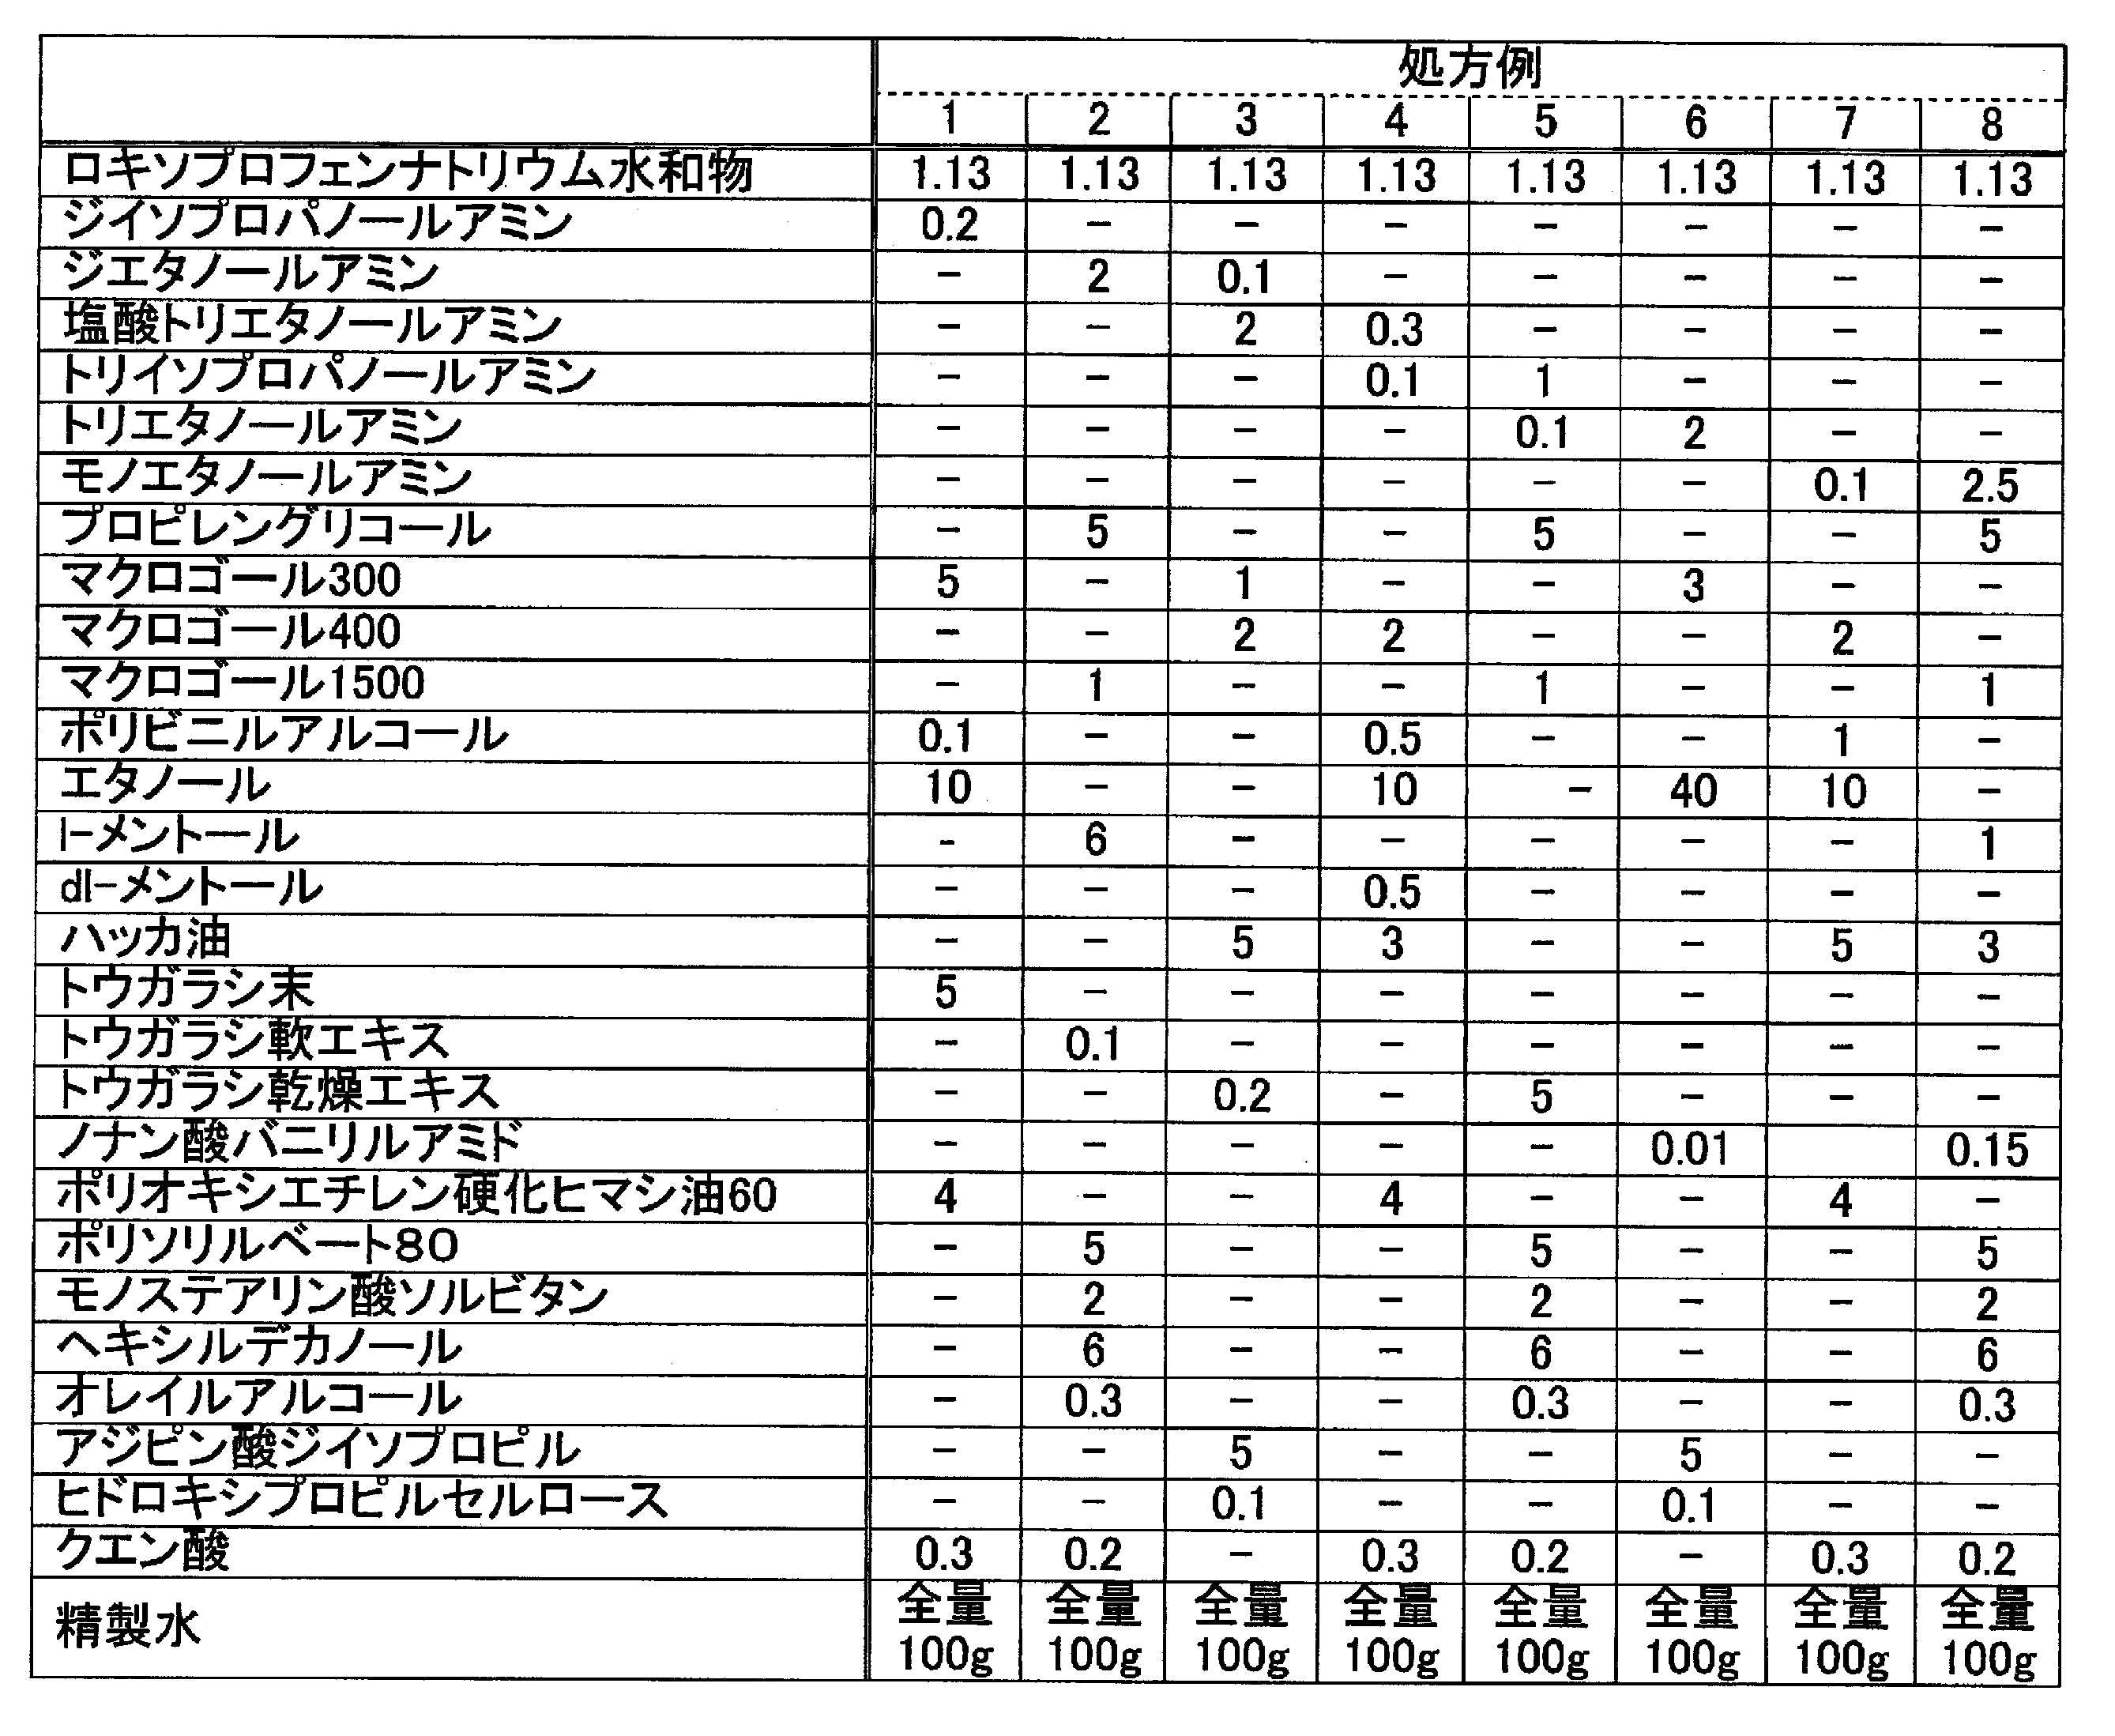 処方例
1 2 3 4 5 6 7 8
ロキソプロフェンナトリウム水和物 1.13 1.13 1.13 1.13 1.13 1.13 1.13 1.13
ジイソプロパノールアミン 0.2 - - - - - - -
ジエタノールアミン - 2 0.1 - - - - -
塩酸トリエタノールアミン - - 2 0.3 - - - -
トリイソプロパノールアミン - - - 0.1 1 - - -
トリエタノールアミン - - - - 0.1 2 - -
モノエタノールアミン - - - - - - 0.1 2.5
プロピレングリコール - 5 - - 5 - - 5
マクロゴール300 5 - 1 - - 3 - -
マクロゴール400 - - 2 2 - - 2 -
マクロゴール1500 - 1 - - 1 - - 1
ポリビニルアルコール 0.1 - - 0.5 - - 1 -
エタノール 10 - - 10 - 40 10 -
l-メントール - 6 - - - - - 1
dl-メントール - - - 0.5 - - - -
ハッカ油 - - 5 3 - - 5 3
トウガラシ末 5 - - - - - - -
トウガラシ軟エキス - 0.1 - - - - - -
トウガラシ乾燥エキス - - 0.2 - 5 - - -
ノナン酸バニリルアミド - - - - - 0.01 0.15
ポリオキシエチレン硬化ヒマシ油60 4 - - 4 - - 4 -
ポリソリルベート80 - 5 - - 5 - - 5
モノステアリン酸ソルビタン - 2 - - 2 - - 2
ヘキシルデカノール - 6 - - 6 - - 6
オレイルアルコール - 0.3 - - 0.3 - - 0.3
アジピン酸ジイソプロピル - - 5 - - 5 - -
ヒドロキシプロピルセルロース - - 0.1 - - 0.1 - -
クエン酸 0.3 0.2 - 0.3 0.2 - 0.3 0.2
精製水 全量 全量 全量 全量 全量 全量 全量 全量
100g 100g 100g 100g 100g 100g 100g 100g